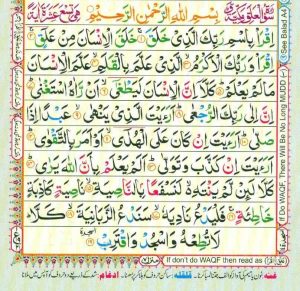 سورة العلق مكية بسم الله الرحمن الرحيم وهي تسع عشرة اية
اقرا باسم ربك الذي خلق خلق الانسان من علق
اقرا وربك الاكرم الذي علم بالقلم علم الانسان
ما لم يعلم كلا ان الانسان ليطغى ان راه استغنى
ان الى ربك الرجعى ارءيت الذي ينهى عبدا اذا
صلى ارءيت ان كان على الهدى او امر بالتقوى
ارءيت ان كذب وتولى الم يعلم بان الله يرى
كلا لئن لم ينته لنسفعا بالناصية ناصية كاذبة
خاطئة فليدع ناديه سندع الزبانية كلا
لا تطعه واسجد واقترب
If don't do WAQF then read as
See Balad A4
If Do WAQF, There Will Be No Long MUDD (~)